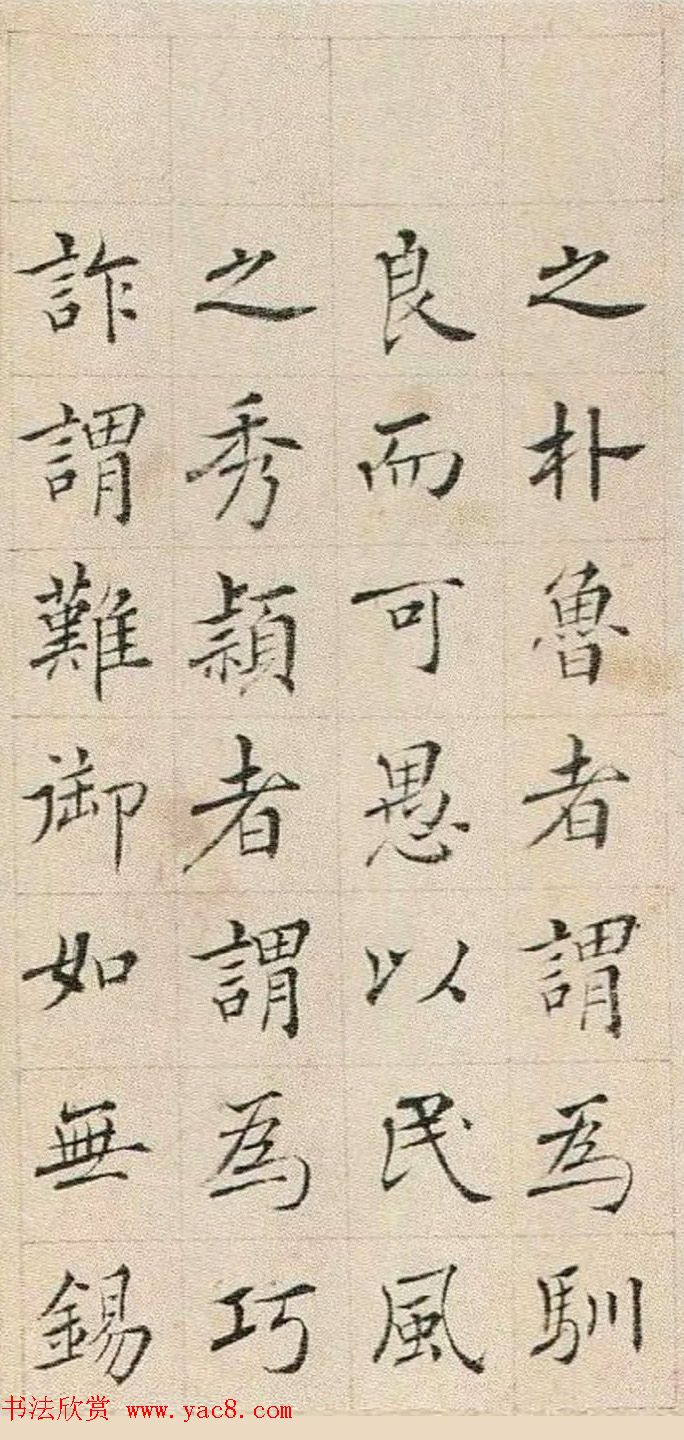 之朴魯者謂為馴
良而可愚以民風
之秀穎者謂為巧
詐謂難御如無錫
书法欣赏 www.yac8.com